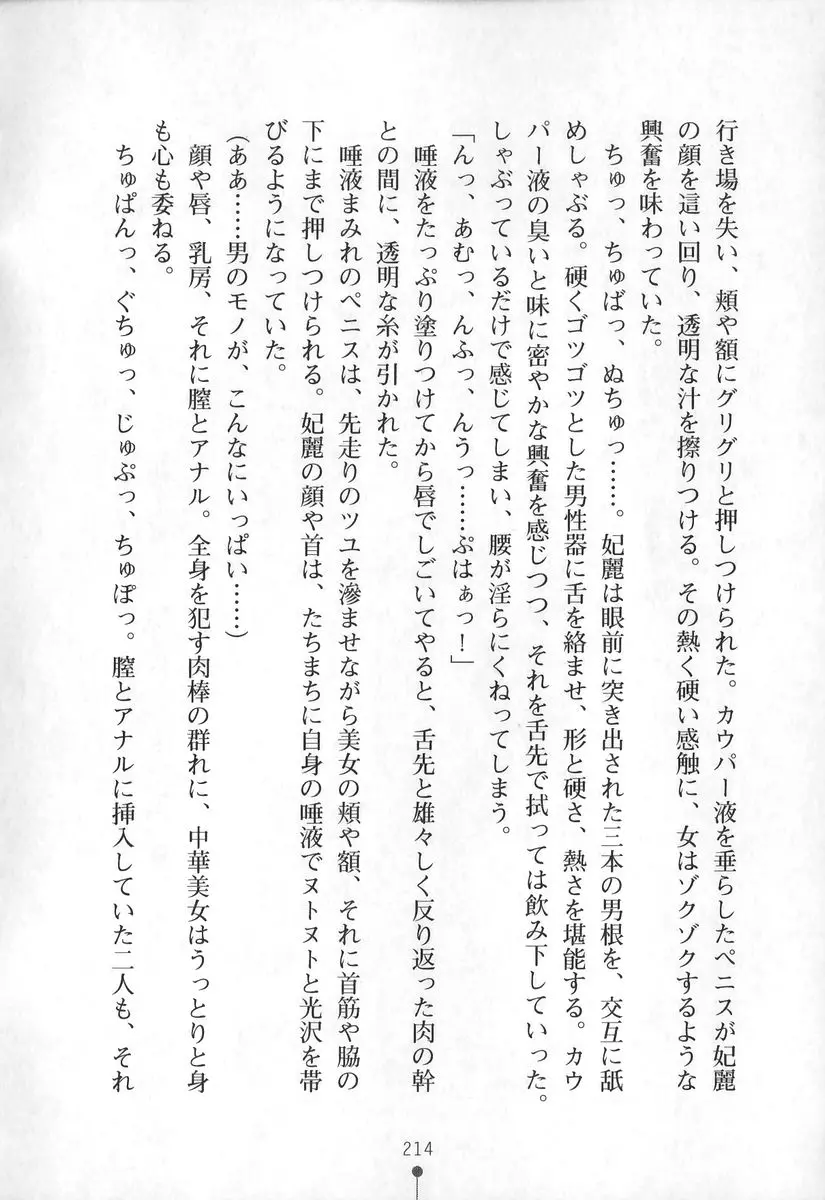 行き場を失い、頬や額にグリグリと押しつけられた。カウパー液を垂らしたペニスが妃麗
の顔を這い回り、透明な汁を擦りつける。その熱く硬い感触に、女はゾクゾクするような
興奮を味わっていた。
ちゅっ、ちゅばっ、ぬちゅっ……。妃麗は眼前に突き出された三本の男根を、交互に舐
めしゃぶる。硬くゴツゴツとした男性器に舌を絡ませ、形と硬さ、熱さを堪能する。カウ
パー液の臭いと味に密やかな興奮を感じつつ、それを舌先で拭っては飲み下していった。
しゃぶっているだけで感じてしまい、腰が淫らにくねってしまう。
「んっ、あむっ、んふっ、んうっ……ぷはぁっ！」
唾液をたっぷり塗りつけてから唇でしごいてやると、舌先と雄々しく反り返った肉の幹
との間に、透明な糸が引かれた。
唾液まみれのペニスは、先走りのツユを滲ませながら美女の頬や額、それに首筋や脇の
下にまで押しつけられる。妃麗の顔や首は、たちまちに自身の唾液でヌトヌトと光沢を帯
びるようになっていた。
（ああ……男のモノが、こんなにいっぱい……）
顔や唇、乳房、それに膣とアナル。全身を犯す肉棒の群れに、中華美女はうっとりと身
も心も委ねる。
ちゅぱんっ、ぐちゅっ、じゅぷっ、ちゅぽっ。膣とアナルに挿入していた二人も、それ
214